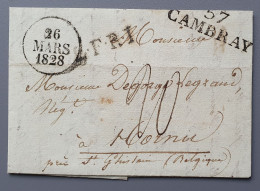 26
MARS
1828
L.F.R.1
57
CAMBRAY
Monsieur
Monsieur Degorge Legrand,
Négt.
à Hornu
près St Ghislain (Belgique)